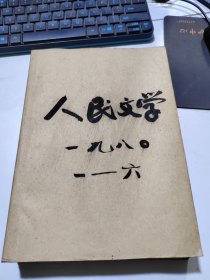 人民文学
一九八〇
一一六